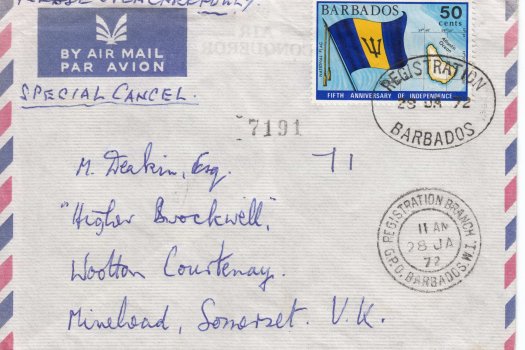 PLEASE OPEN CAREFULLY.
BY AIR MAIL
PAR AVION
SPECIAL CANCEL.
BARBADOS
50
cents
Atlantic
Ocean
FIFTH ANNIVERSARY OF INDEPENDENCE
REGISTRATION
28 JA 72
BARBADOS
7191
M. Deakin, Esq.
71
"Higher Brockwell",
Wootton Courtenay.
Minehead, Somerset. U.K.
REGISTRATION BRANCH
11 AM
28 JA
72
G.P.O. BARBADOS. W.I.